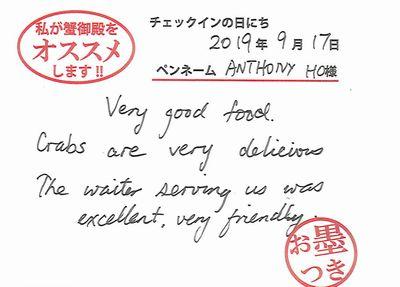 私が蟹御殿を
オススメ
します!!
チェックインの日にち
2019年9月17日
ペンネーム ANTHONY HO様
Very good food.
Crabs are very delicious
The waiter serving us was
excellent, very friendly.
お墨
つき